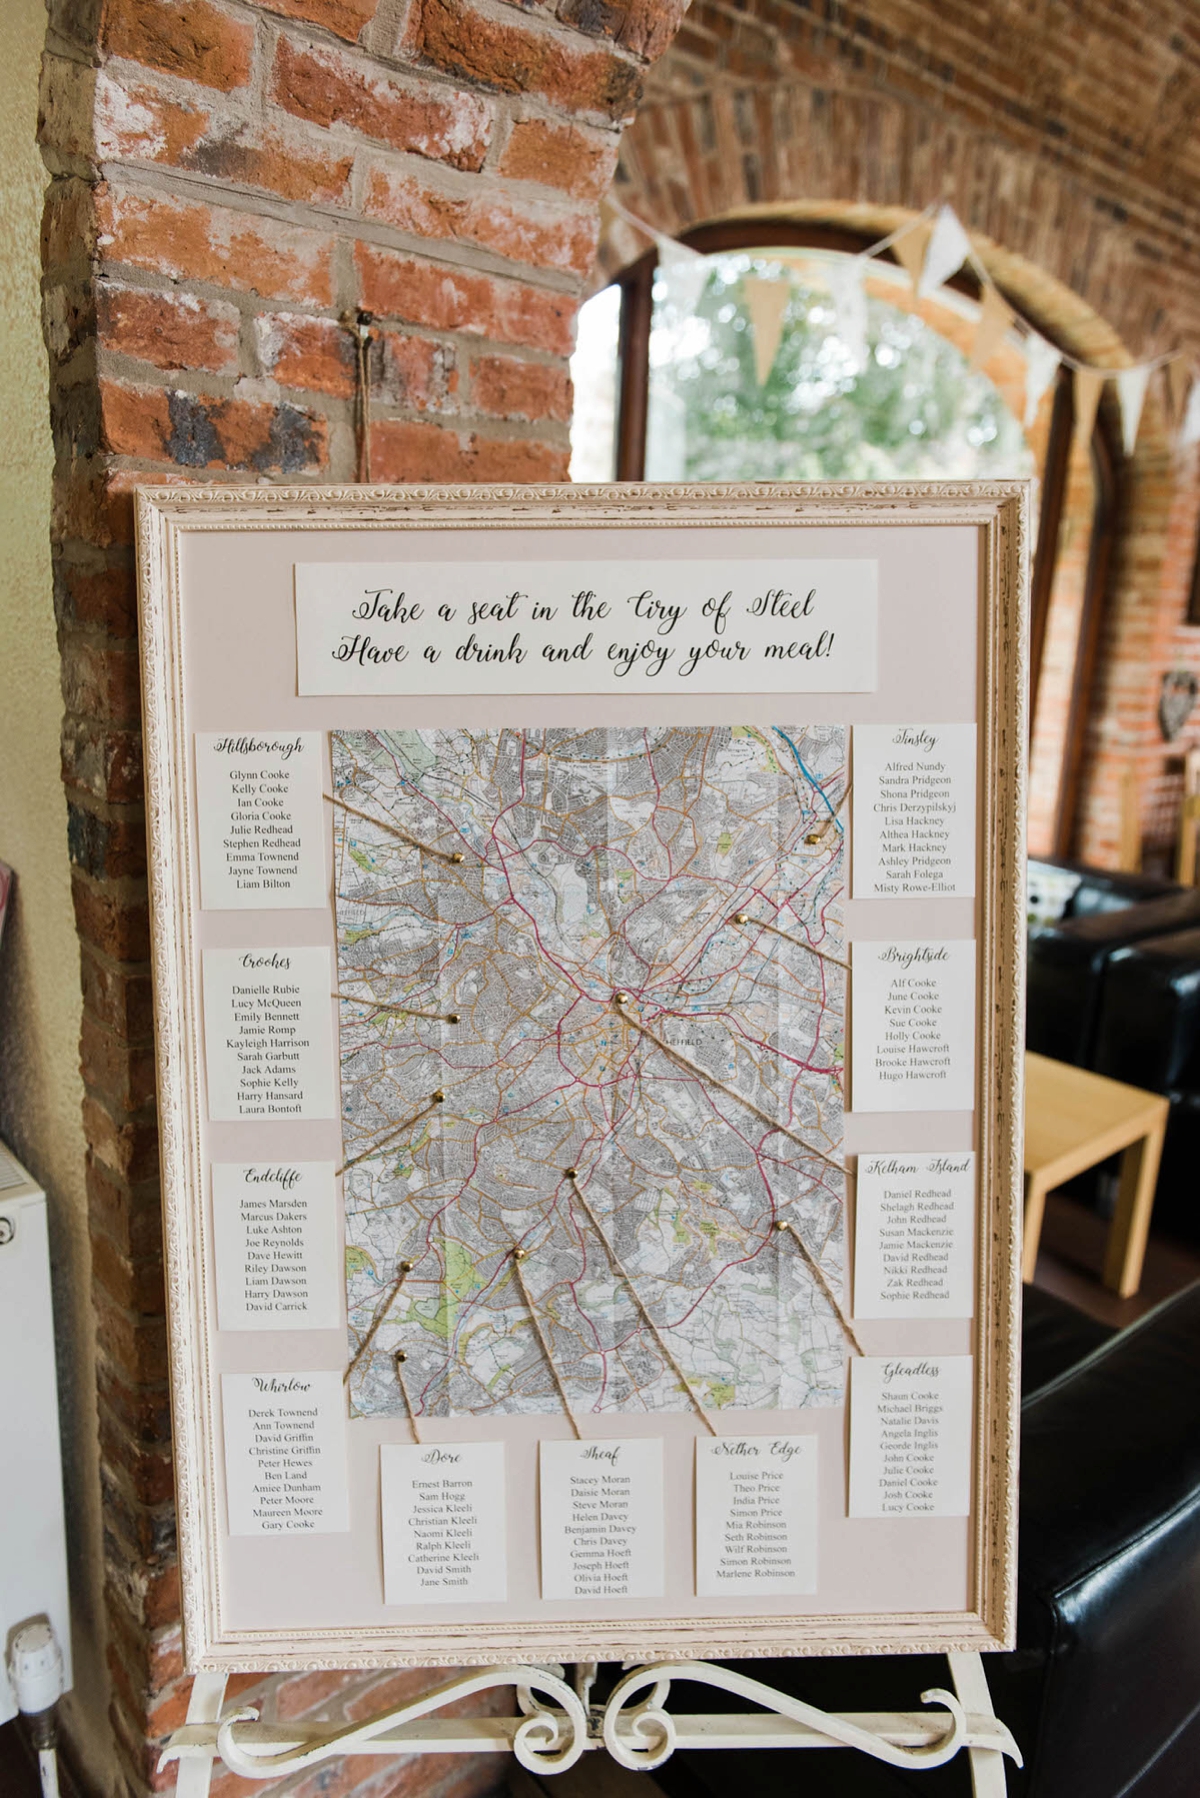 Take a seat in the Ciry of Steel
Have a drink and enjoy your meal!
Hillsborough
Glynn Cooke
Kelly Cooke
Ian Cooke
Gloria Cooke
Julie Redhead
Stephen Redhead
Emma Townend
Jayne Townend
Liam Bilton
Crookes
Danielle Rubie
Lucy McQueen
Emily Bennett
Jamie Romp
Kayleigh Harrison
Sarah Garbutt
Jack Adams
Sophie Kelly
Harry Hansard
Laura Bontoft
Endcliffe
James Marsden
Marcus Dakers
Luke Ashton
Joe Reynolds
Dave Hewitt
Riley Dawson
Liam Dawson
Harry Dawson
David Carrick
Whirlow
Derek Townend
Ann Townend
David Griffin
Christine Griffin
Peter Hewes
Ben Land
Amiee Dunham
Peter Moore
Maureen Moore
Gary Cooke
Dore
Ernest Barron
Sam Hogg
Jessica Kleeli
Christian Kleeli
Naomi Kleeli
Ralph Kleeli
Catherine Kleeli
David Smith
Jane Smith
Sheaf
Stacey Moran
Daisie Moran
Steve Moran
Helen Davey
Benjamin Davey
Chris Davey
Gemma Hoeft
Joseph Hoeft
Olivia Hoeft
David Hoeft
Nether Edge
Louise Price
Theo Price
India Price
Simon Price
Mia Robinson
Seth Robinson
Wilf Robinson
Simon Robinson
Marlene Robinson
Tinsley
Alfred Nundy
Sandra Pridgeon
Shona Pridgeon
Chris Derzypilskyj
Lisa Hackney
Althea Hackney
Mark Hackney
Ashley Pridgeon
Sarah Folega
Misty Rowe-Elliot
Brightside
Alf Cooke
June Cooke
Kevin Cooke
Sue Cooke
Holly Cooke
Louise Hawcroft
Brooke Hawcroft
Hugo Hawcroft
Kelham Island
Daniel Redhead
Shelagh Redhead
John Redhead
Susan Mackenzie
Jamie Mackenzie
David Redhead
Nikki Redhead
Zak Redhead
Sophie Redhead
Gleadless
Shaun Cooke
Michael Briggs
Natalie Davis
Angela Inglis
Geordie Inglis
John Cooke
Julie Cooke
Daniel Cooke
Josh Cooke
Lucy Cooke